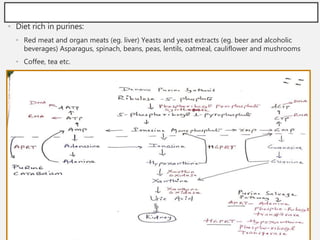 • Diet rich in purines:
• Red meat and organ meats (eg. liver) Yeasts and yeast extracts (eg. beer and alcoholic
beverages) Asparagus, spinach, beans, peas, lentils, oatmeal, cauliflower and mushrooms
• Coffee, tea etc.
Denovo Purine Synthesis
Ribulose -5- phosphate
5-phosphoribosyl 1-pyrophosphate
DNA
RNA
ATP
AMP
Inosine Monophosphate
XMP
GMP
APRT
Adenosine
Adenine
Inosine
HGPRT
Guanosine
Guanine
Hypoxanthine
Xanthine oxidase
Xanthine
Xanthine oxidase
Uric Acid
Kidney
Purine
Catabolism
Purine Salvage
Pathway
APRT- Adenine
Phospho-Ribosyl
Transferase
HGPRT- Hypoxanthine
Phosphoribosyl
Transferase